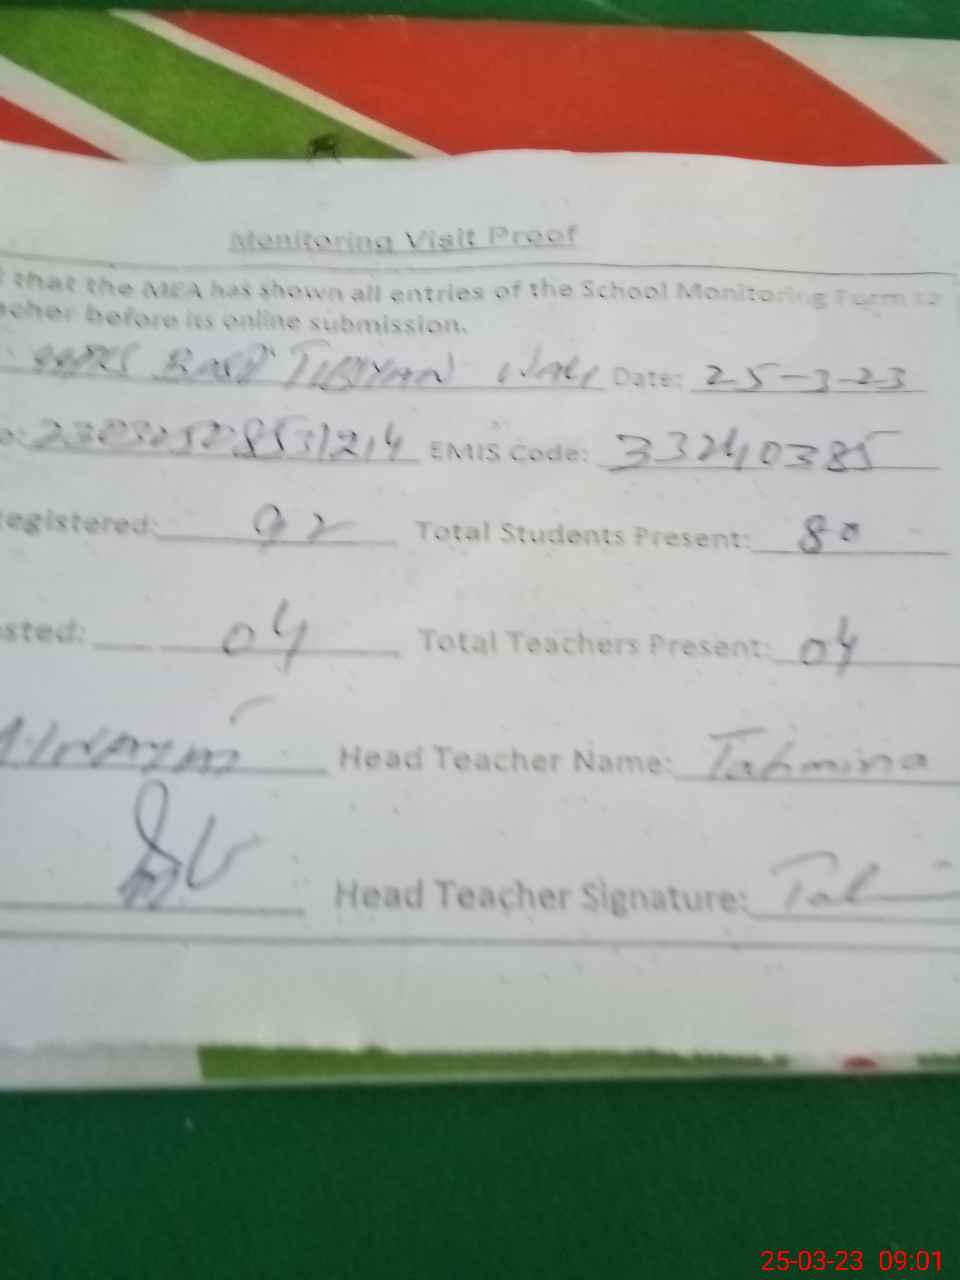 Monitoring Visit Proof
that the MEA has shown all entries of the School Monitoring Form to
acher before its online submission.
Date: 25-3-23
EMIS Code: 33240385
Registered: 92 Total Students Present: 80
sted: 04 Total Teachers Present: 04
Head Teacher Name: Tahmina
Head Teacher Signature:
25-03-23 09:01